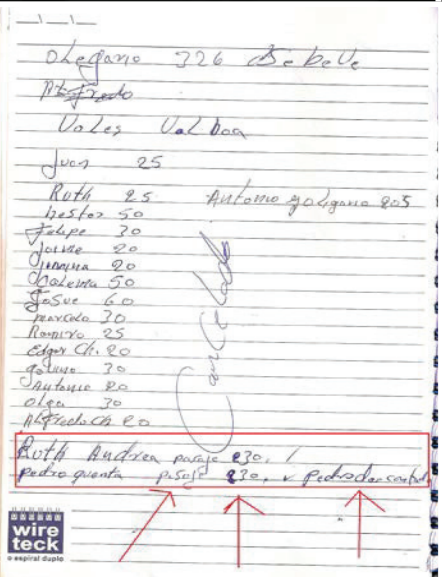 Olegario 326 Se beve
Alfredo
Vales Valboa
Juan 25
Ruth 25 Antonio y oligario 205
nestor 50
Felipe 30
Jaime 20
50
Josue 60
marcelo 30
Ramiro 25
Edgar Ch. 20
30
Antonio 20
olga 30
Alfredo Ch 20
Cancelado
Ruth Andrea pasaje 230, /
pedro quenta pasaje 230, v Pedro
wire
teck
espiral duplo